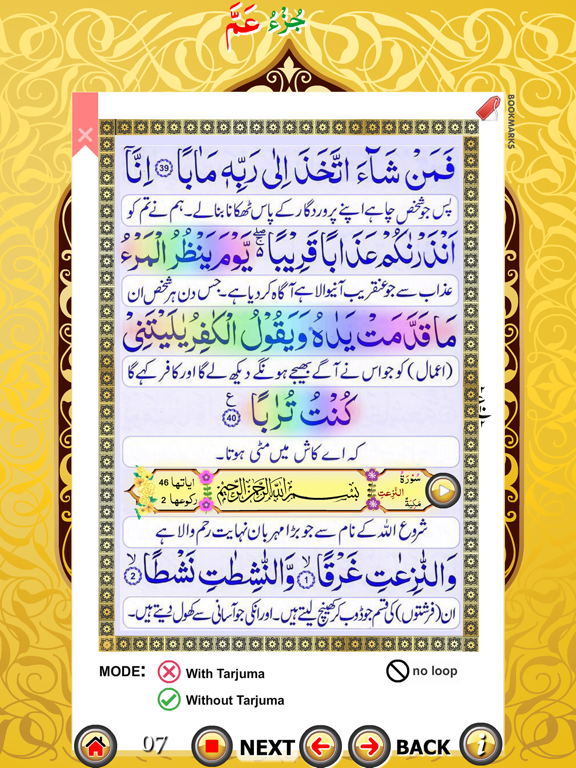 جُزْءُ عَمَّ
BOOKMARKS
فَمَنْ شَآءَ اتَّخَذَ اِلٰى رَبِّهٖ مَاٰبًا ﴿39﴾ اِنَّاۤ
پس جو شخص چاہے اپنے پروردگار کے پاس ٹھکانا بنا لے۔ ہم نے تم کو
اَنْذَرْنٰكُمْ عَذَابًا قَرِيْبًا ۚۖ يَّوْمَ يَنْظُرُ الْمَرْءُ
عذاب سے جو عنقریب آنیوالا ہے آگاہ کر دیا ہے۔ جس دن ہر شخص ان
مَا قَدَّمَتْ يَدٰهُ وَيَقُوْلُ الْكٰفِرُ يٰلَيْتَنِىْ
(اعمال) کو جو اس نے آگے بھیجے ہونگے دیکھ لے گا اور کافر کہے گا
كُنْتُ تُرٰبًا ﴿40﴾ ع
کہ اے کاش میں مٹی ہوتا۔
سُوْرَةُ النّٰزِعٰتِ مَكِّيَّةٌ
بِسْمِ اللهِ الرَّحْمٰنِ الرَّحِيْمِ
اٰیاتها 46
رکوعها 2
شروع اللہ کے نام سے جو بڑا مہربان نہایت رحم والا ہے
وَالنّٰزِعٰتِ غَرْقًا ۙ﴿1﴾ وَّالنّٰشِطٰتِ نَشْطًا ۙ﴿2﴾
ان (فرشتوں) کی قسم جو ڈوب کر کھینچ لیتے ہیں۔ اور انکی جو آسانی سے کھول دیتے ہیں۔
MODE:
With Tarjuma
no loop
Without Tarjuma
07
NEXT
BACK
i